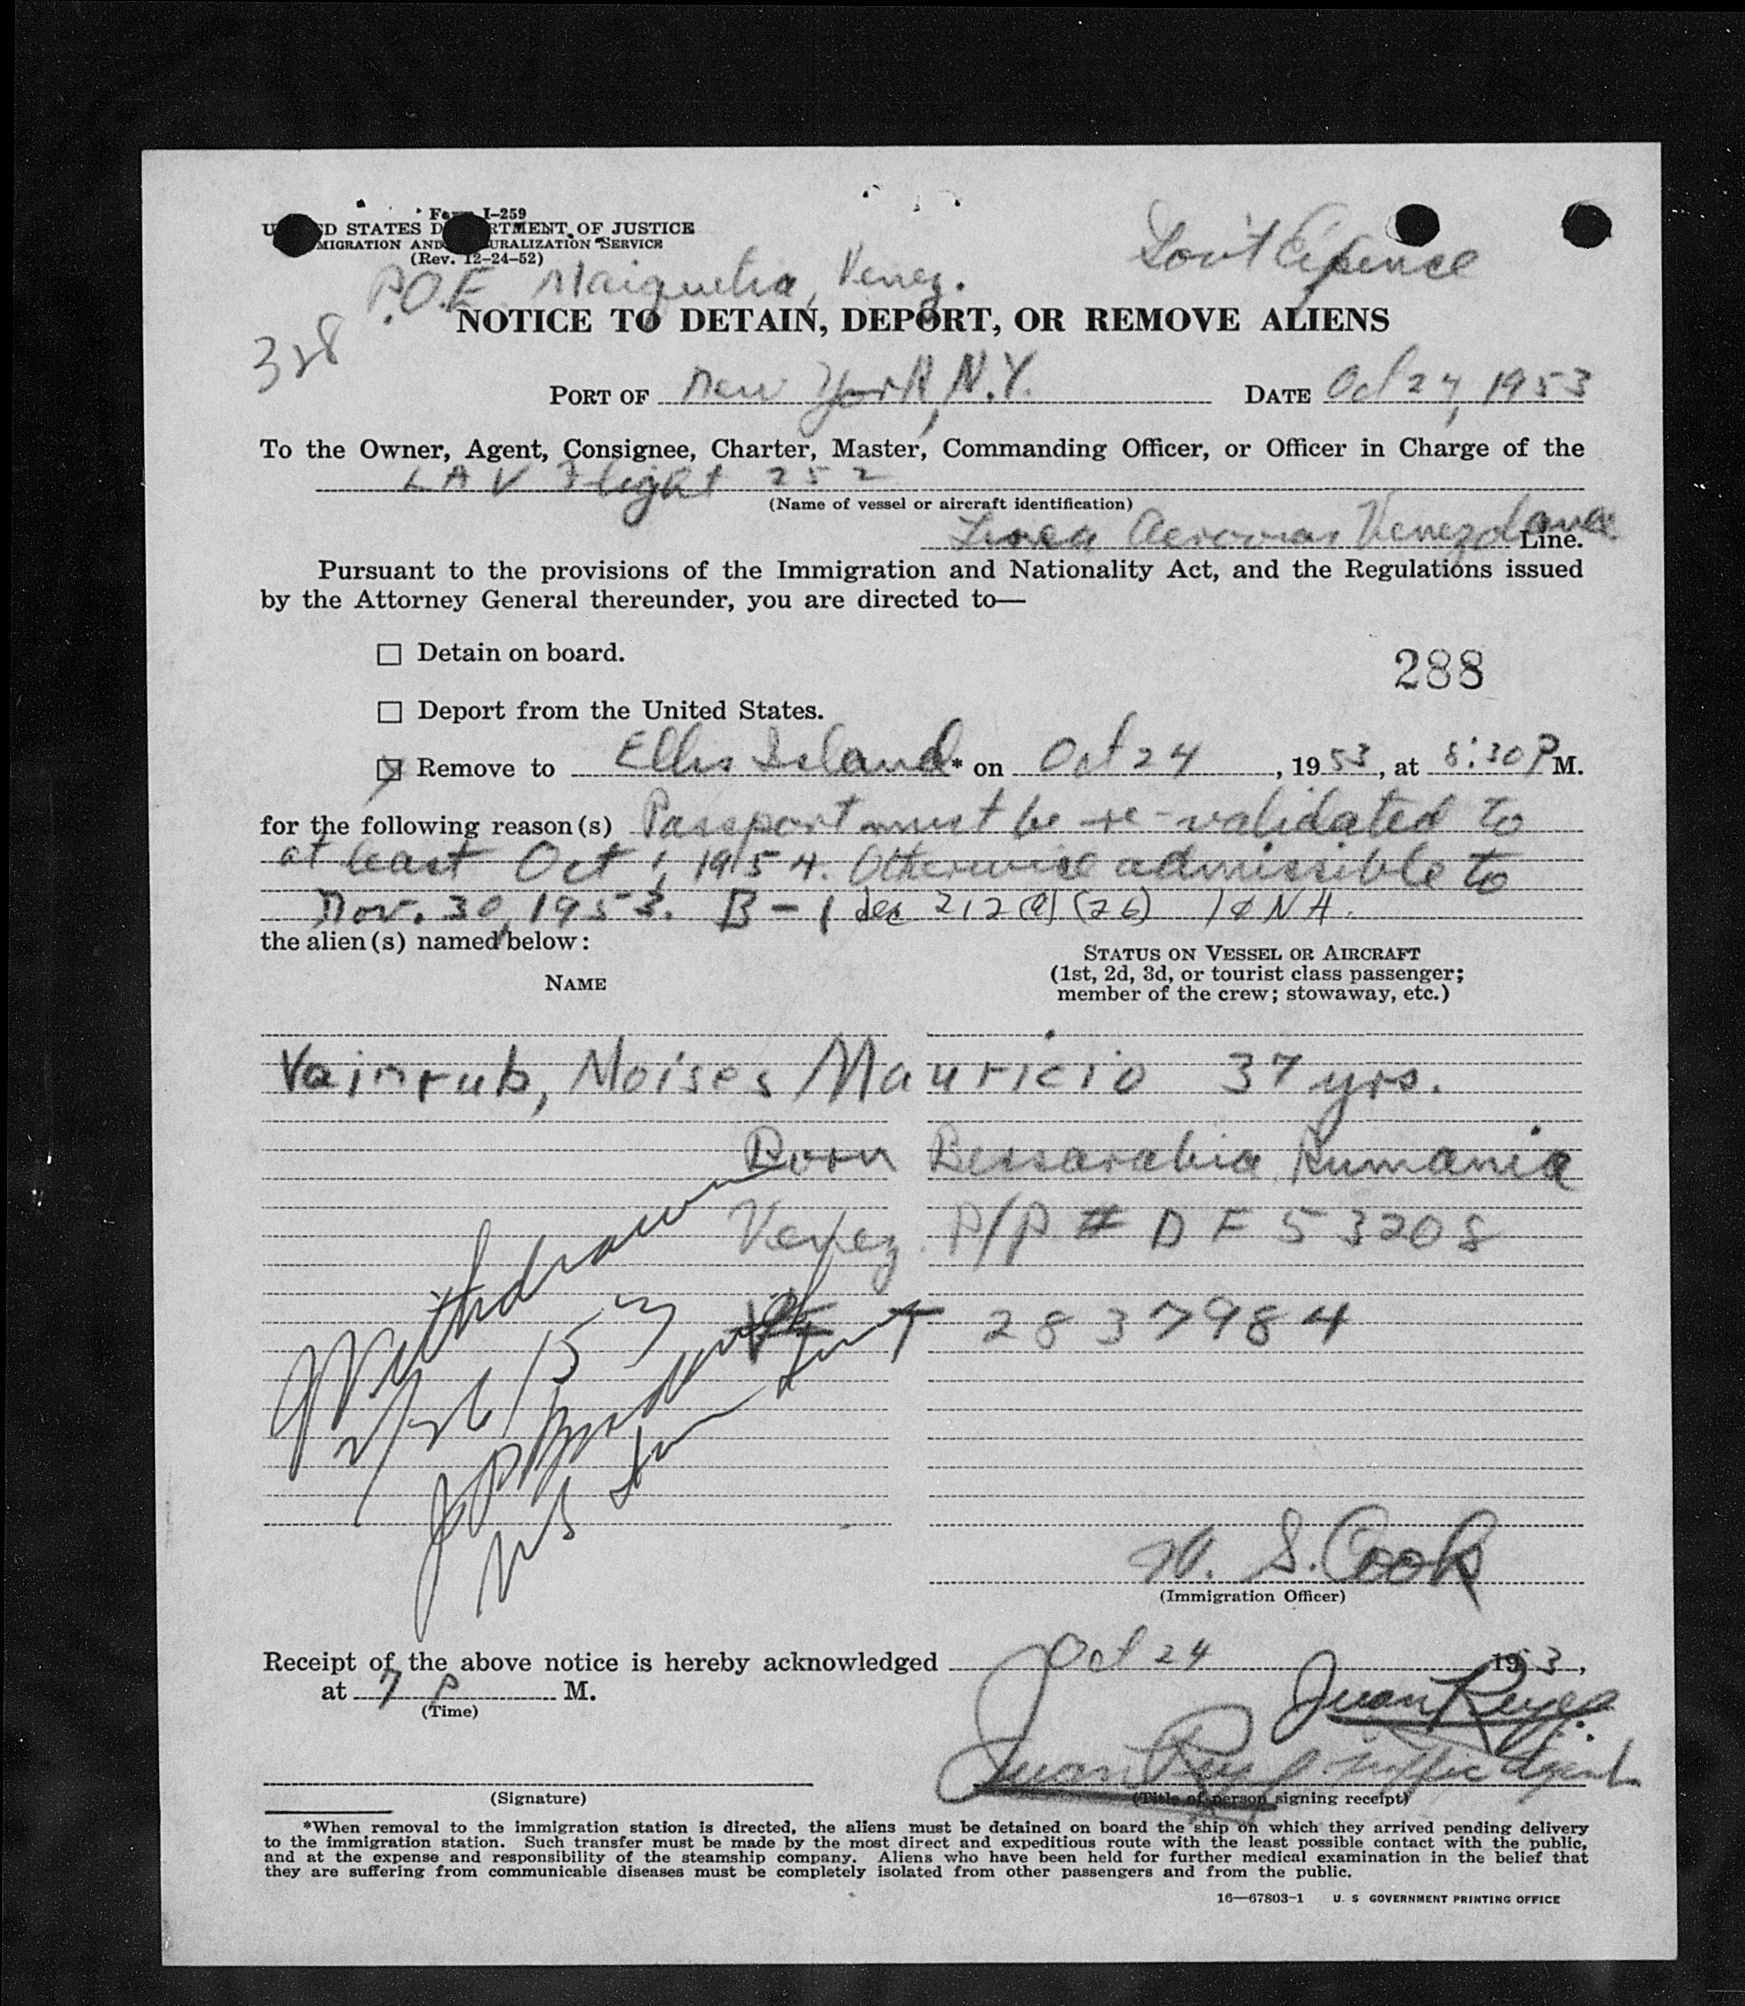 Form I-259
UNITED STATES DEPARTMENT OF JUSTICE
IMMIGRATION AND NATURALIZATION SERVICE
(Rev. 12-24-52)
Gov't Expence
P.O.E. Maiquetia, Venez.
328
NOTICE TO DETAIN, DEPORT, OR REMOVE ALIENS
PORT OF New York, N.Y. DATE Oct 24, 1953
To the Owner, Agent, Consignee, Charter, Master, Commanding Officer, or Officer in Charge of the
LAV Flight 252
(Name of vessel or aircraft identification)
Linea Aeropostal Venezolana Line.
Pursuant to the provisions of the Immigration and Nationality Act, and the Regulations issued
by the Attorney General thereunder, you are directed to—
Detain on board.
288
Deport from the United States.
Remove to Ellis Island * on Oct 24, 1953, at 8:30 P M.
for the following reason(s) Passport must be re-validated to
at least Oct 1, 1954. Otherwise admissible to
Nov. 30, 1953. B-1 Sec 212(a)(26) I & N A.
the alien(s) named below:
NAME
STATUS ON VESSEL OR AIRCRAFT
(1st, 2d, 3d, or tourist class passenger;
member of the crew; stowaway, etc.)
Vainrub, Moises Mauricio 37 yrs.
Born Bessarabia, Rumania
Venez. P/P # DF 53208
T 2837984
Withdrawn
W. S. Cook
(Immigration Officer)
Receipt of the above notice is hereby acknowledged Oct 24 1953,
at 7 P M.
(Time)
Juan Reyes
Juan Reyes Traffic Agent
(Signature)
(Title of person signing receipt)
*When removal to the immigration station is directed, the aliens must be detained on board the ship on which they arrived pending delivery
to the immigration station. Such transfer must be made by the most direct and expeditious route with the least possible contact with the public,
and at the expense and responsibility of the steamship company. Aliens who have been held for further medical examination in the belief that
they are suffering from communicable diseases must be completely isolated from other passengers and from the public.
16—67803-1 U. S GOVERNMENT PRINTING OFFICE